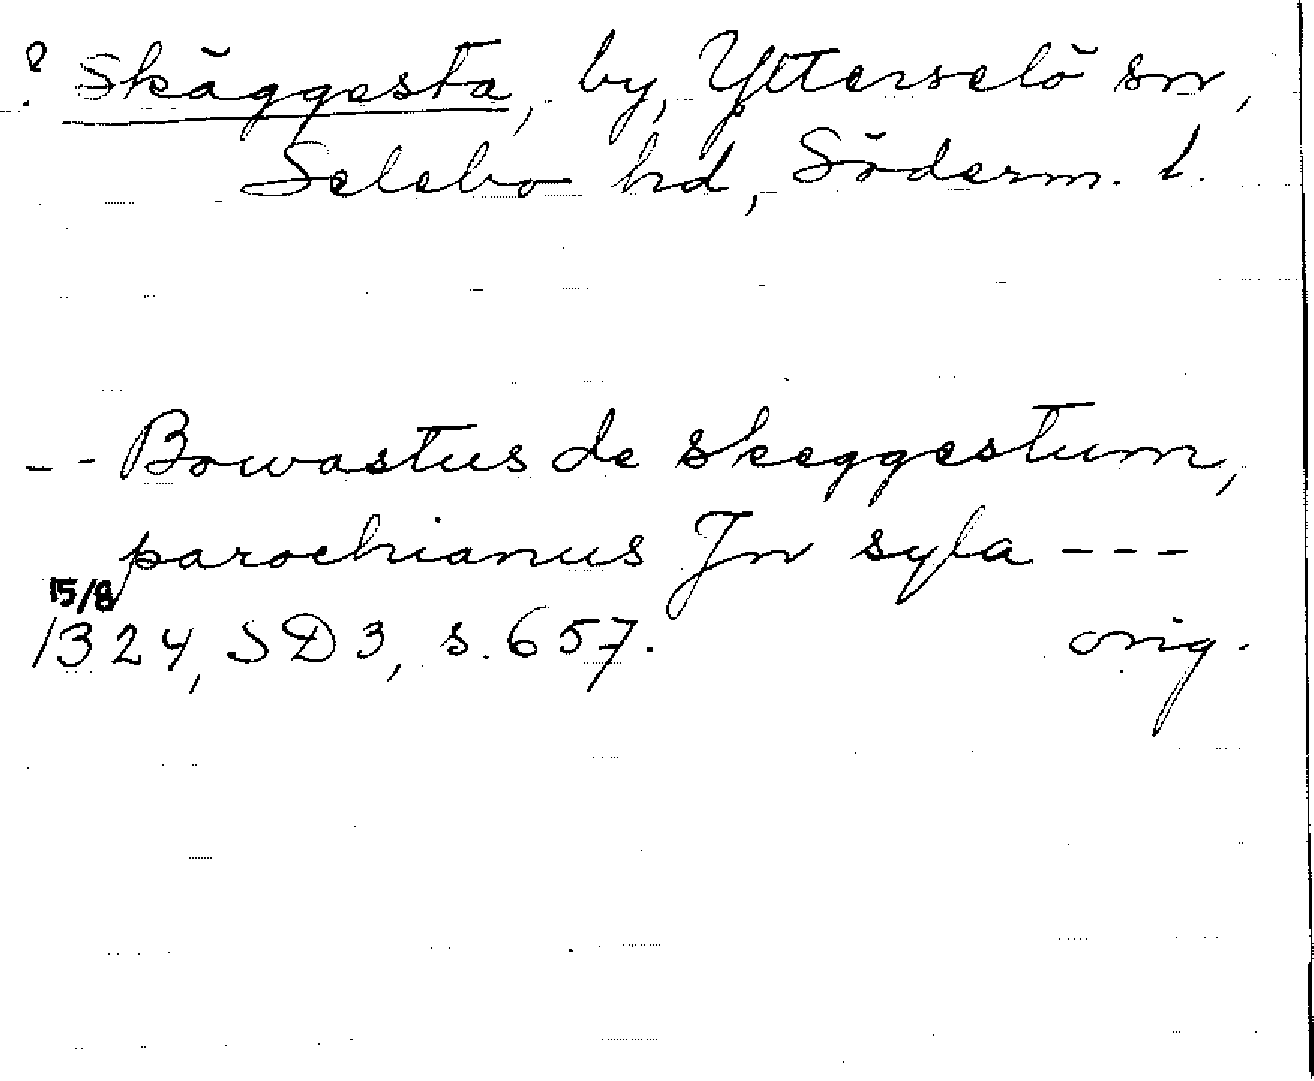 ? Skäggesta, by, Ytterselö sn,
Selebo hd, Söderm. l.
-- Bowastus de skeggestum,
parochianus Jn syla ---
15/8
1324, SD3, s. 657. orig.